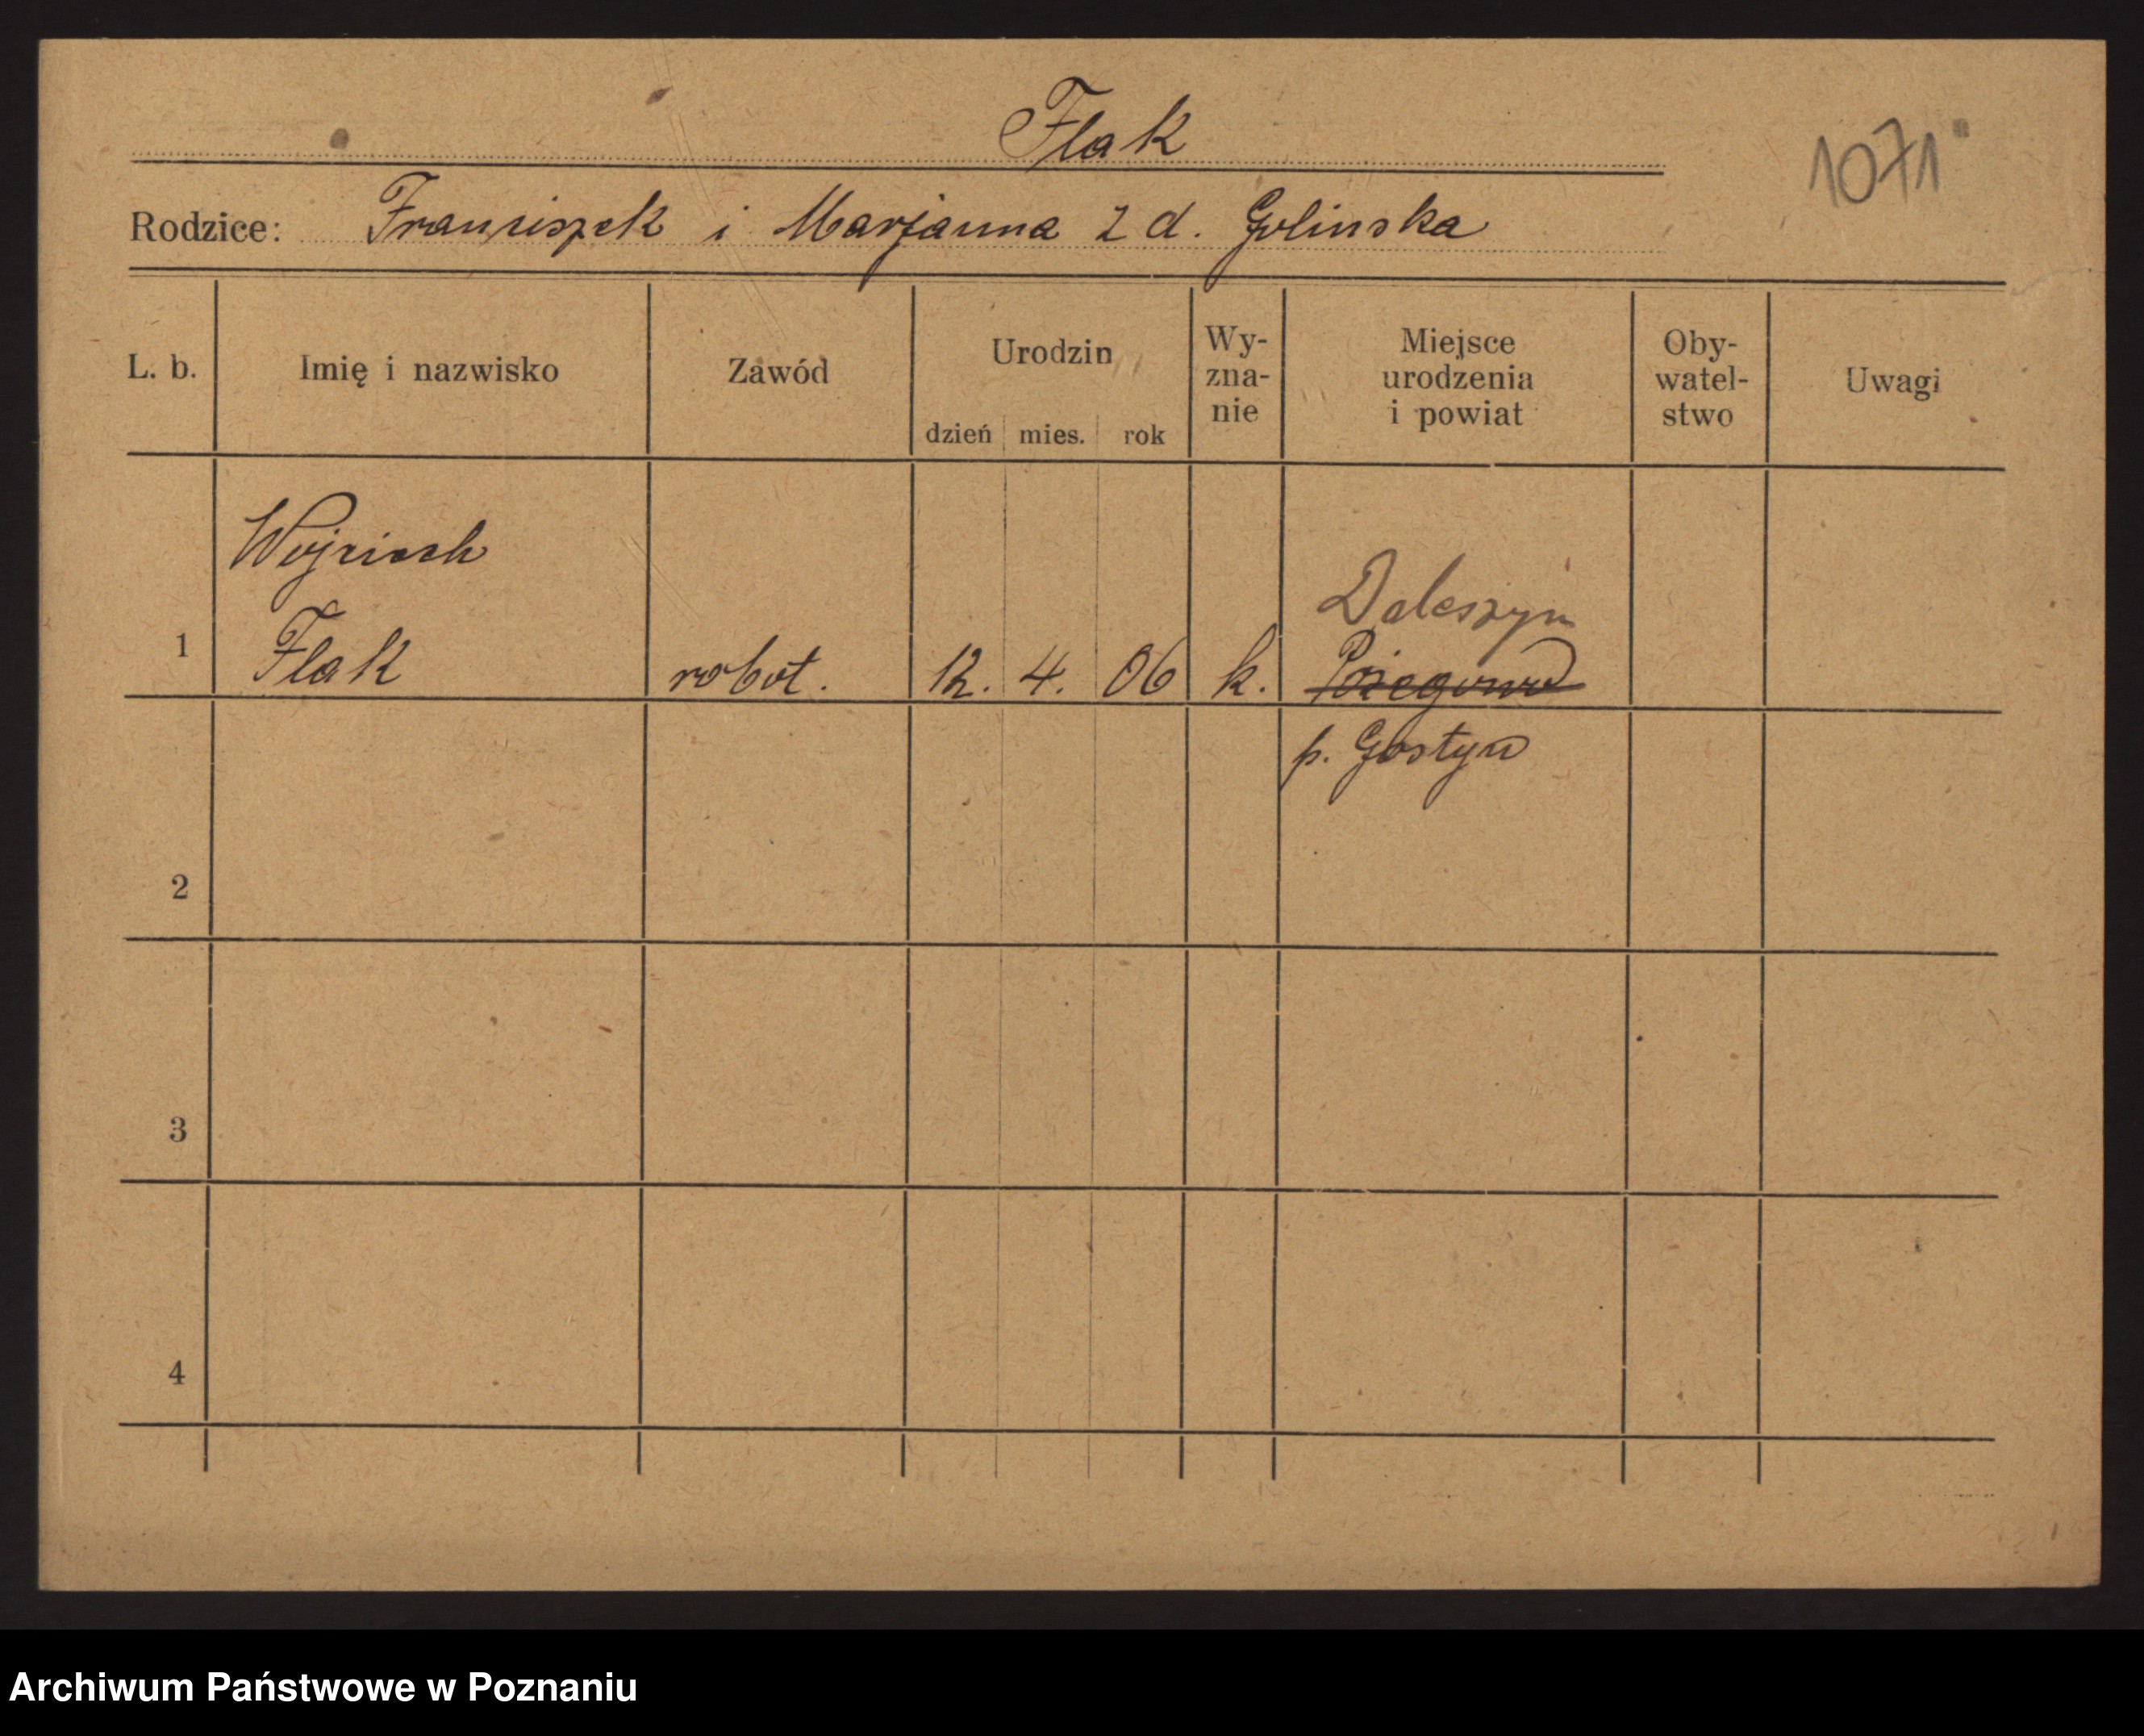 Flak
1071
Rodzice: Franciszek i Marjanna z d. Golinska
L. b.
Imię i nazwisko
Zawód
Urodzin
dzień mies. rok
Wy-
zna-
nie
Miejsce
urodzenia
i powiat
Oby-
watel-
stwo
Uwagi
Wojciech
Daleszyn
1 Flak robot. 12. 4. 06 k. Pożegowo
p. Gostyn
2
3
4
Archiwum Państwowe w Poznaniu